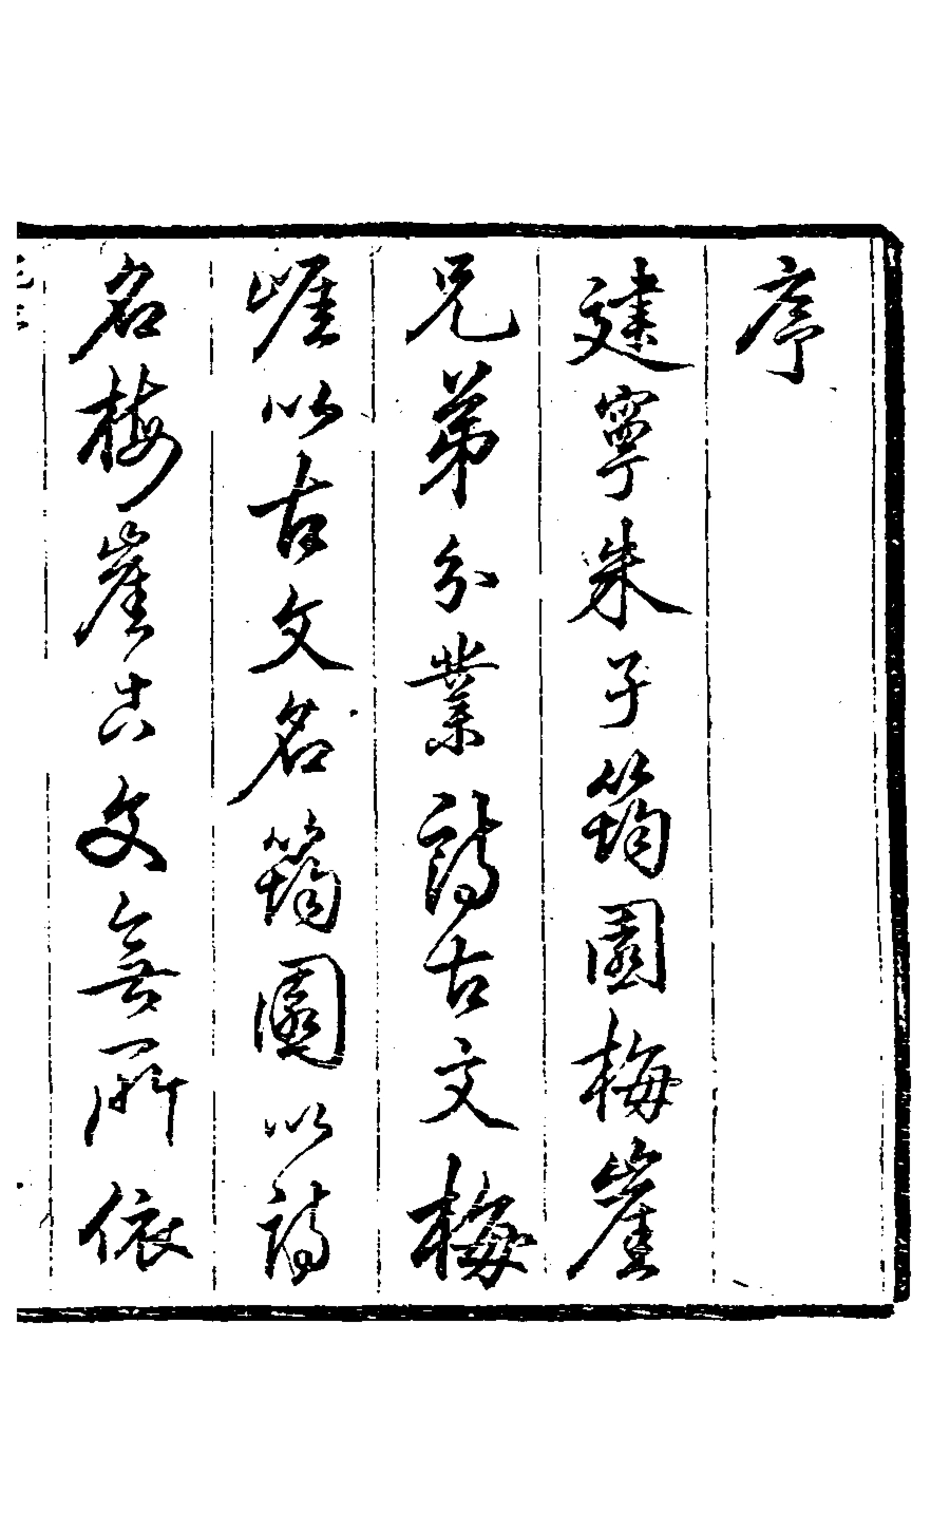 序
建寧朱子筠園梅崖
兄弟分業詩古文梅
崕以古文名筠園以詩
名梅崖古文無所依